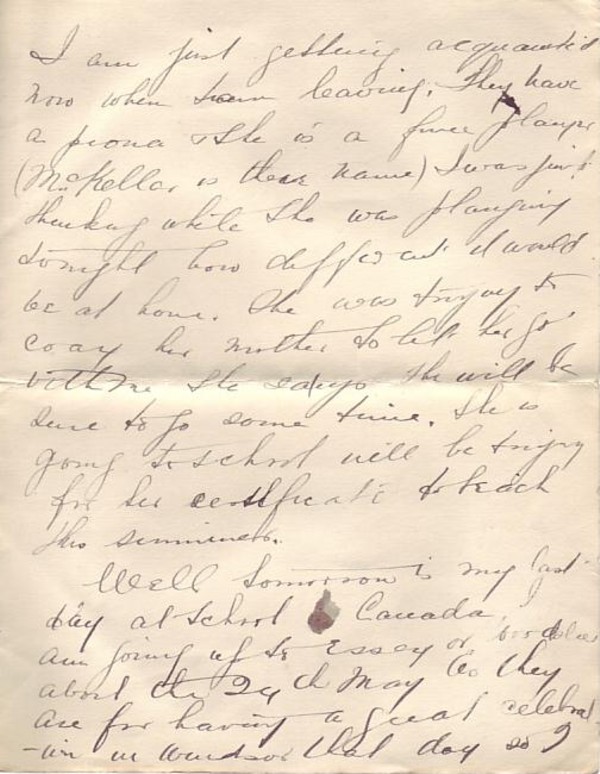 I am just getting acquainted
now when I am leaving. They have
a piona & she is a fine player
(McKellar is their name) I was just
thinking while she was playing
tonight how different it would
be at home. She was trying to
coax her mother to let her go
with me she says she will be
sure to go some time. She is
going to school will be trying
for her certificate to teach
this summer.
Well tomorrow is my last
day at school Canada. I
am going up to Essex or
about the 24th May as they
are for having a great celebrat
-ion in Windsor that day so I